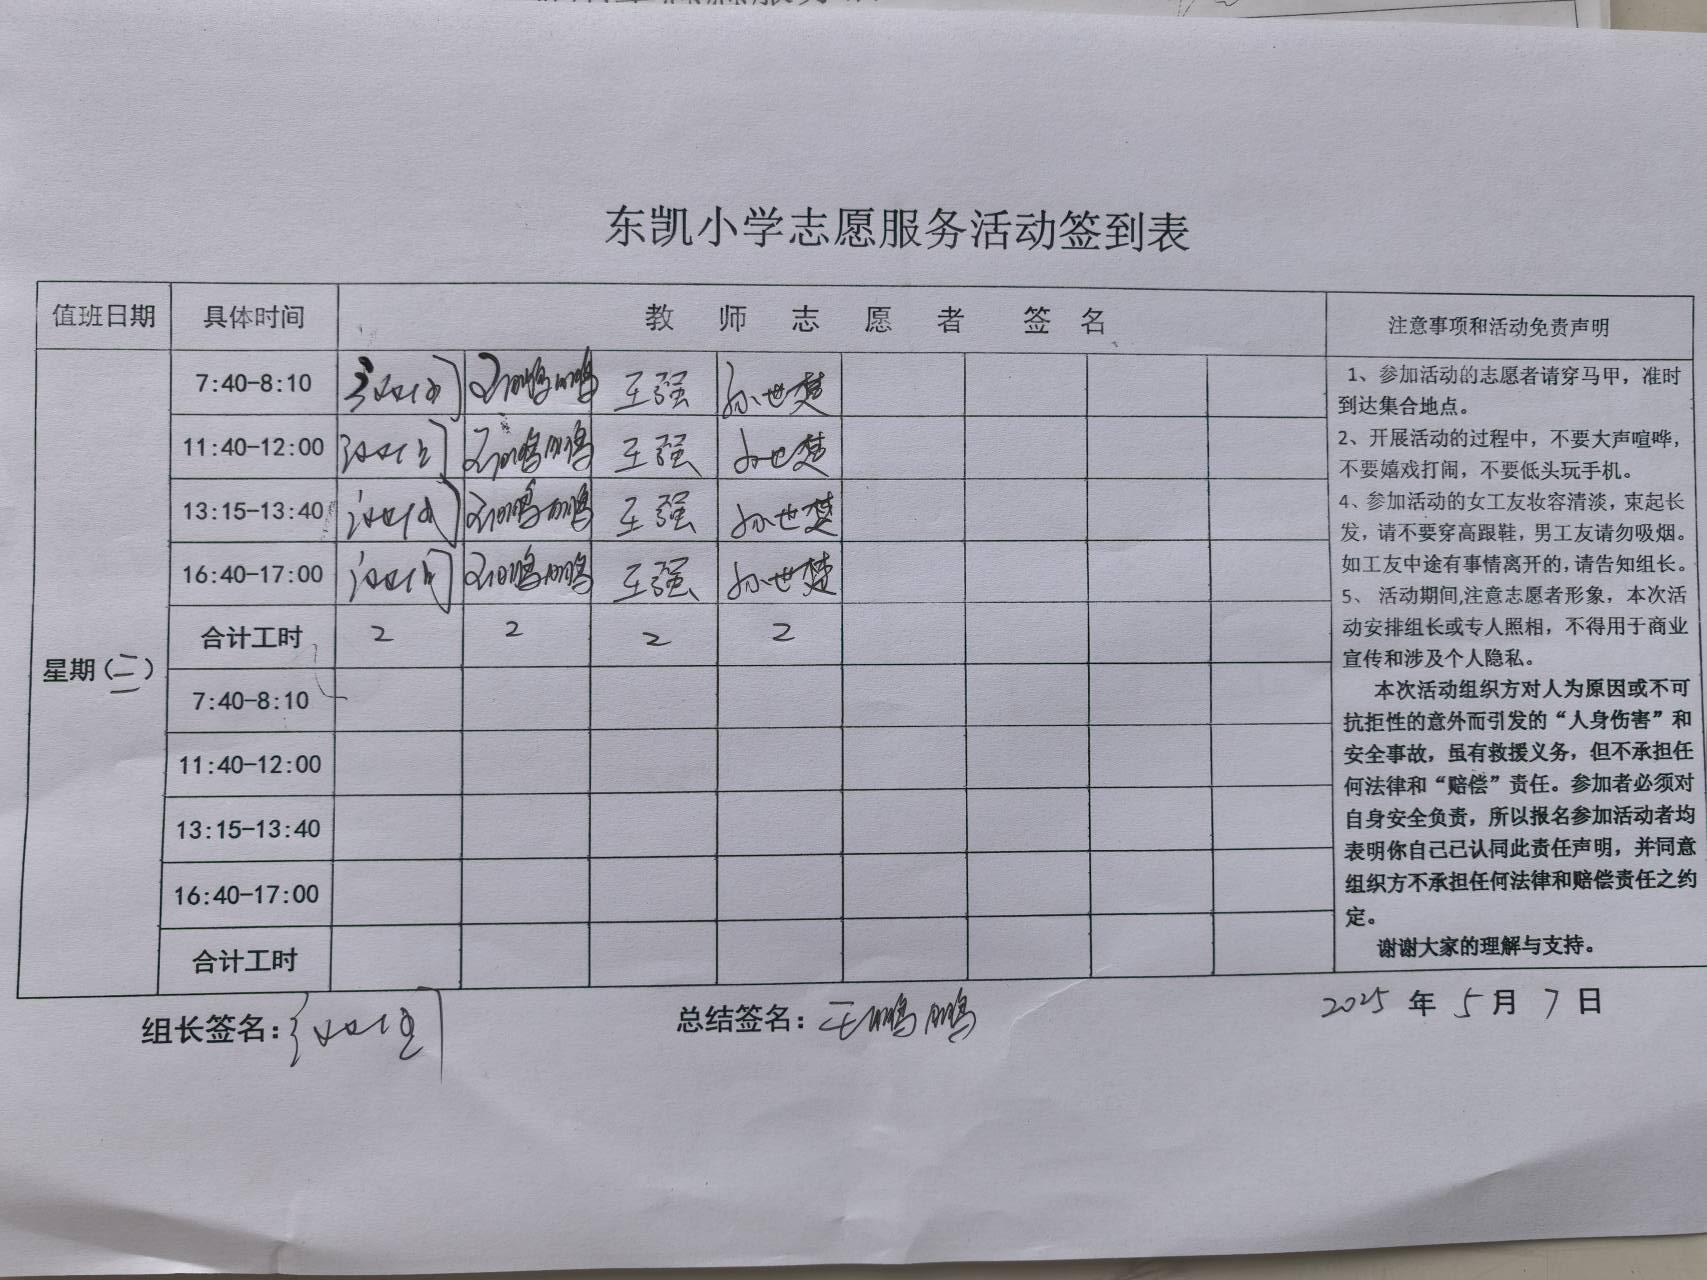 东凯小学志愿服务活动签到表
值班日期 具体时间 教师志愿者 签名 注意事项和活动免责声明
星期(三)
7:40-8:10 刘鹏鹏 王强 孙世楚
11:40-12:00 刘鹏鹏 王强 孙世楚
13:15-13:40 刘鹏鹏 王强 孙世楚
16:40-17:00 刘鹏鹏 王强 孙世楚
合计工时 2 2 2 2
7:40-8:10
11:40-12:00
13:15-13:40
16:40-17:00
合计工时
1、参加活动的志愿者请穿马甲，准时
到达集合地点。
2、开展活动的过程中，不要大声喧哗，
不要嬉戏打闹，不要低头玩手机。
4、参加活动的女工友妆容清淡，束起长
发，请不要穿高跟鞋，男工友请勿吸烟。
如工友中途有事情离开的,请告知组长。
5、 活动期间,注意志愿者形象，本次活
动安排组长或专人照相，不得用于商业
宣传和涉及个人隐私。
本次活动组织方对人为原因或不可
抗拒性的意外而引发的“人身伤害”和
安全事故，虽有救援义务，但不承担任
何法律和“赔偿”责任。参加者必须对
自身安全负责，所以报名参加活动者均
表明你自己已认同此责任声明，并同意
组织方不承担任何法律和赔偿责任之约
定。
谢谢大家的理解与支持。
组长签名： 总结签名：王鹏鹏 2025 年 5 月 7 日